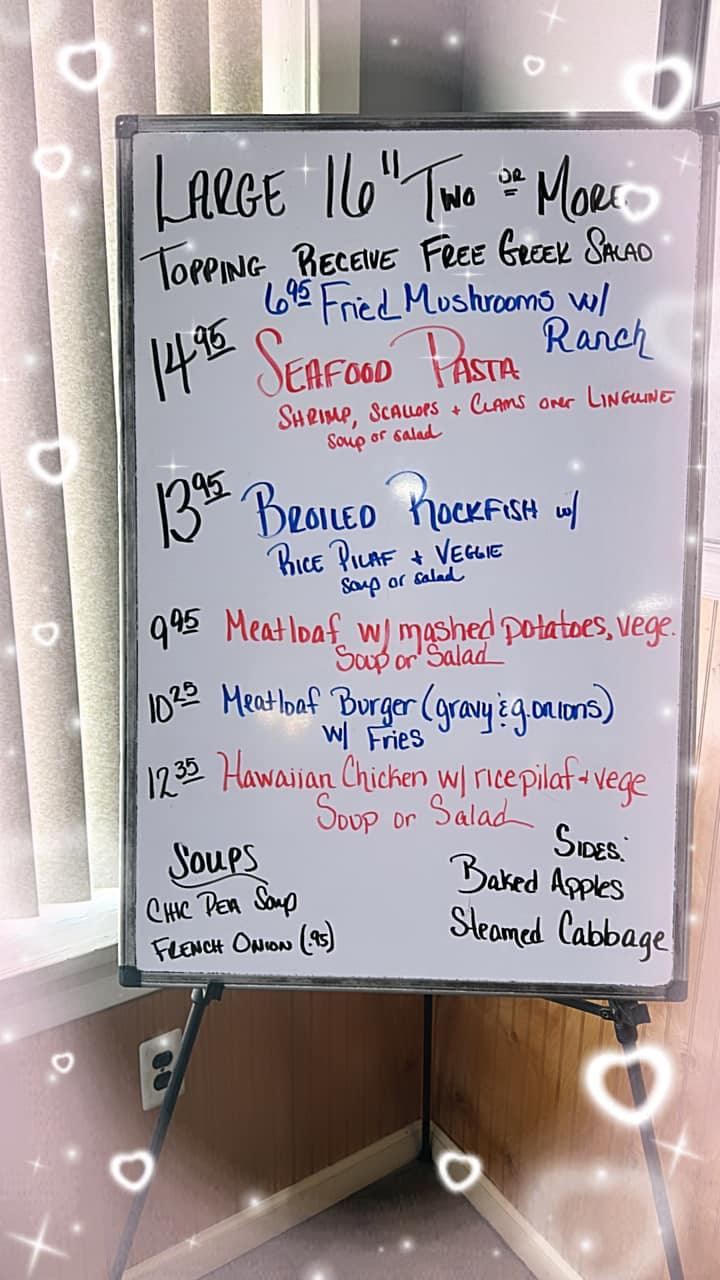 LARGE 16" TWO OR MORE
TOPPING RECEIVE FREE GREEK SALAD
6.95 Fried Mushrooms w/
Ranch
14.95 SEAFOOD PASTA
SHRIMP, SCALLOPS + CLAMS over LINGUINE
Soup or salad
13.95 BROILED ROCKFISH w/
RICE PILAF + VEGGIE
Soup or salad
9.95 Meatloaf w/ mashed potatoes, vege.
Soup or Salad
10.25 Meatloaf Burger (gravy & g.onions)
w/ Fries
12.35 Hawaiian Chicken w/ rice pilaf + vege
Soup or Salad
SOUPS
CHIC PEA Soup
FRENCH ONION (.95)
SIDES:
Baked Apples
Steamed Cabbage